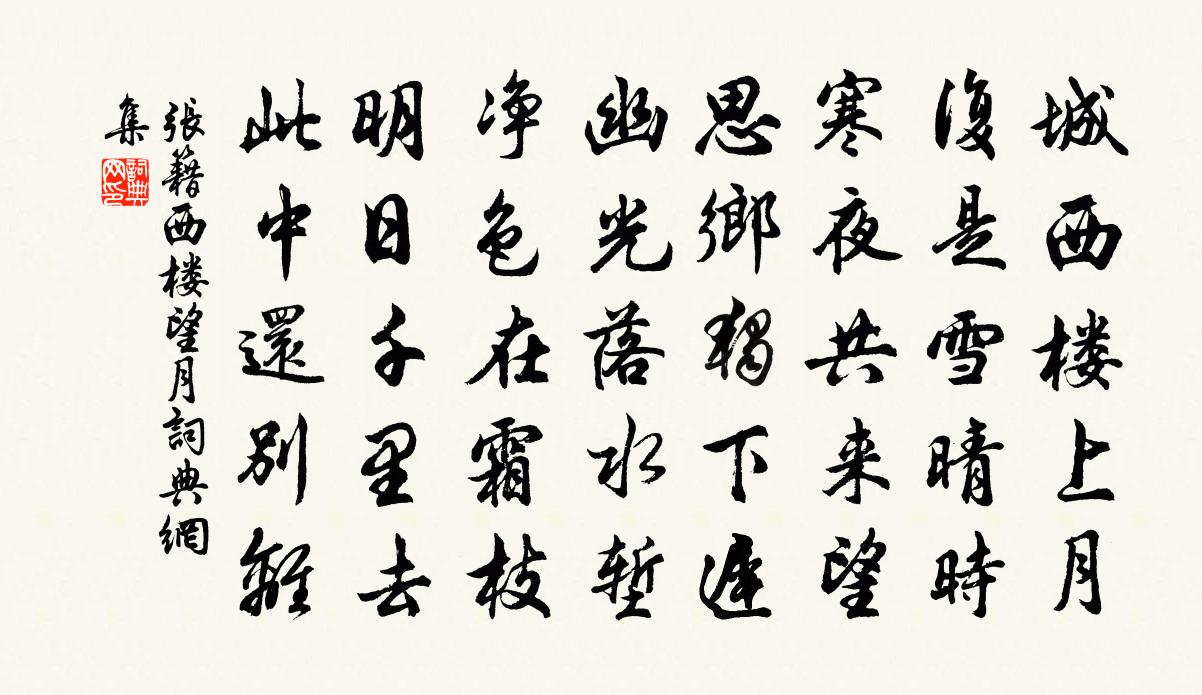 城西楼上月
復是雪晴時
寒夜共来望
思鄉獨下遲
幽光落水塹
净色在霜枝
明日千里去
此中還別離
張籍西楼望月詞典網
集
詞典
网印